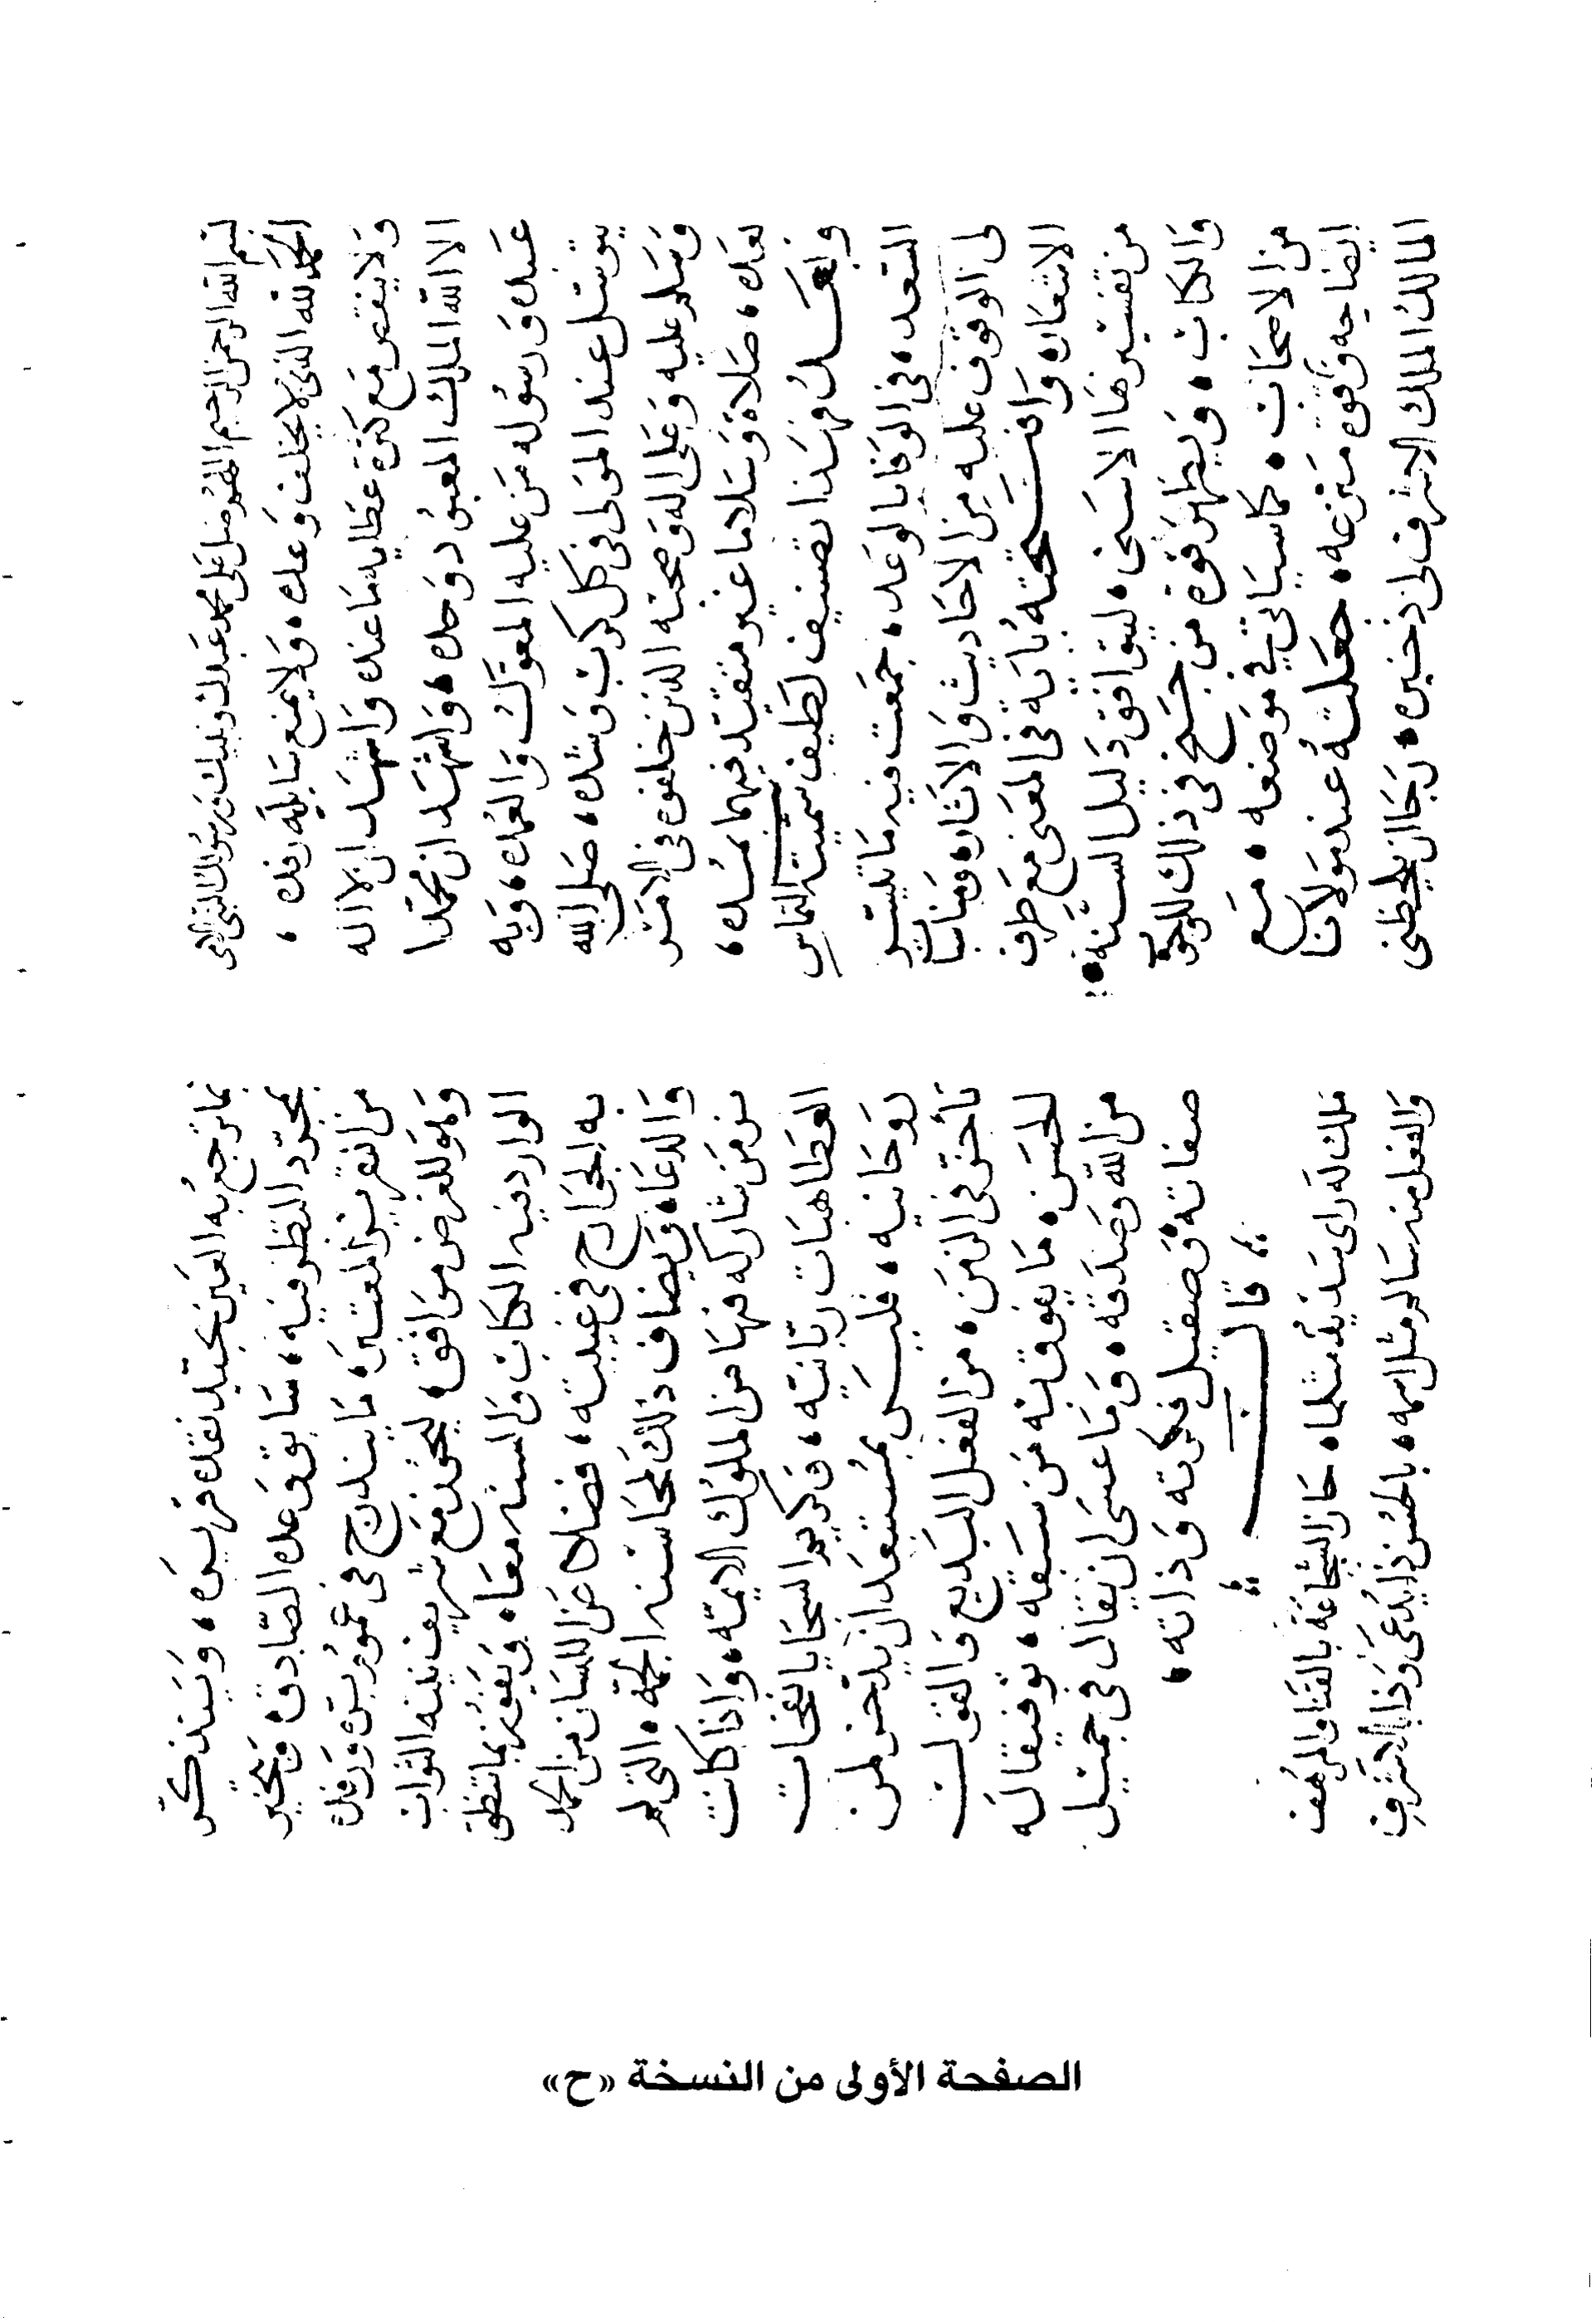 بسم الله الرحمن الرحيم اللهم صل على محمد عبدك ونبيك ورسولك النبي الامي
الحمد لله الذي لا يخلف وعده، ولا يمنع سايله رفده،
ولا ينقص مع كثرة عطايه ما عنده واشهد ان لا اله
الا الله الملك المعبود وحده، واشهد ان محمدا
عبده ورسوله من عليه المعول والعمده، وبه
يتوسل عند المولى في كل كرب وشده، صلى الله
وسلم عليه وعلى اله وصحبه الذين خلفوه في الامر
بعده، صلاة وسلاما غير متقيد فيهما بمده،
وبعد فهذا تصنيف لطيف سميته التماس
السعد، في الوفا بالوعد، جمعت فيه ما تيسر
لي الوقوف عليه من الاحاديث والاثار، ومناسبا
الاشعار، وافتتحته باية في المعنى مع طرف
من تفسيرها الاسنى، ليوافق دليل السنه
والكتاب، ويظهر قوة من جنح في ذلك للوجوب
من الاصحاب، كما سياتي في موضعه، مع
ايضاحه وقوة منزعه، جعلته عند مولانا
المالك الملك الاشرف لي ذخيره، رجا ان يلحظني
بما ترجع به العين بعيد فقده قريره، وسيذكر
بمجرد النظر فيه، سابق وعده الصادق وتخير
من انفر يسير المعسر، ما يندرج في عموم بره ورفده
وهو للغرض موافق، ليحوز مع شريف نيته الثواب
الوارد فيه الكتاب والسنه معا، ويفوز بما تنطق
به الجوارح في غيبته، فضلا عن اللسان من الحمد
والدعا، ويضاف ذلك لمحاسنه الجمه، التي لم
نر من شاركه فيها من الملوك الايمه، واذا كانت
العطا هبات ربانيه، وكريم السجايا نفحات
روحانيه، فليس بمستبعد ان يدخر لمن
تاخر في الزمن، من الفعل البديع والقول
الحسن، ما يفوق به من سبقه، توفيقا له
من الله وصدقه، وما عسى ان يقال في جميل
صفاته، وصقيل فكرته وذاته،
قال
ملك له راى سديد مثلما، حاز الشجاعة بالقنا والمرهف
والفعل منه سالم مثل اسمه، بالحسن ذا يدعى وذا بالاشرف
الصفحة الأولى من النسخة «ح»